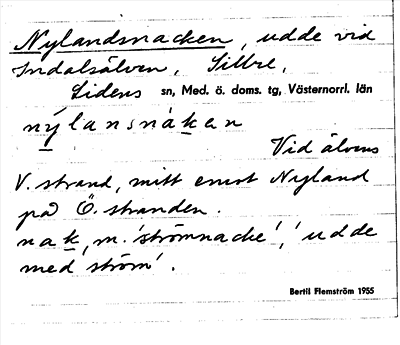 Nylandsnacken, udde vid
Indalsälven, Sillre,
Lidens sn, Med. ö. doms. tg, Västernorrl. län
nýlansnàkan
Vid älvens
V. strand, mitt emot Nyland
på Ö. stranden.
nak, m. 'strömnacke', 'udde
med ström'.
Bertil Flemström 1955